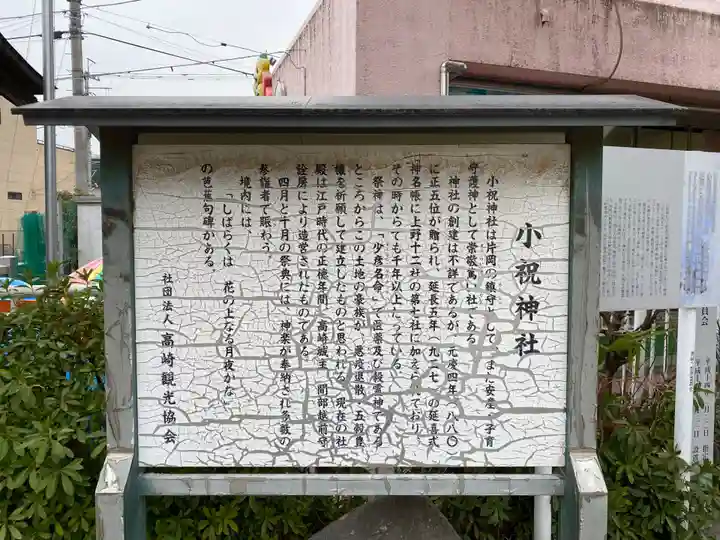 小祝神社
小祝神社は片岡の鎮守として、また安産、子育
守護神として崇敬篤い社である
神社の創建は不詳であるが、元慶四年(八八〇
に正五位が贈られ、延長五年(九二七)の延喜式
神名帳に上野十二社の第七社に加えられており
その時からでも千年以上たっている
祭神は、「少彦名命」で医薬及び穀霊神である
ところからこの土地の豪族が、悪疫退散、五穀豊
穣を祈願して建立したものと思われる。現在の社
殿は江戸時代の正徳年間、高崎城主、間部越前守
詮房により造営されたものである。
四月と十月の祭典には、神楽が奉納され多数の
参詣者で賑わう
境内には、
「しばらくは 花の上なる月夜かな」
の芭蕉句碑がある。
社団法人 高崎観光協会